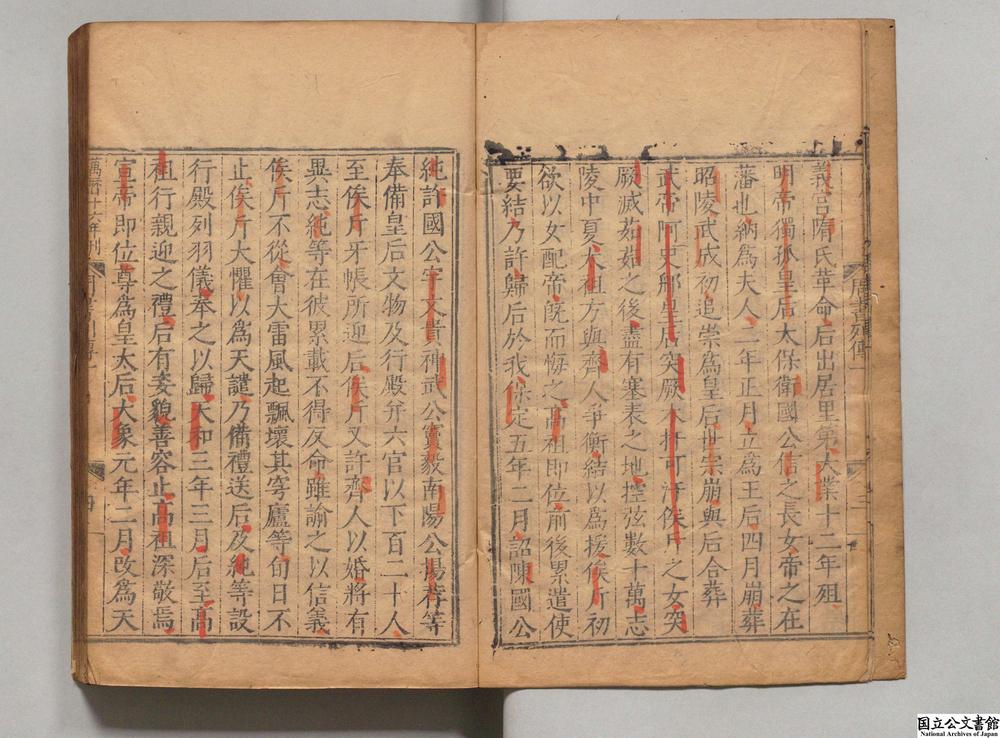 周書列傳一
義宮隋氏革命后出居里第大業十二年殂
明帝獨孤皇后太保衛國公信之長女帝之在
藩也納為夫人二年正月立為王后四月崩葬
昭陵武成初追崇為皇后世宗崩與后合葬
武帝阿史那皇后突厥木扞可汗俟斤之女突
厥滅茹茹之後盡有塞表之地控弦數十萬志
陵中夏太祖方與齊人爭衡結以為援俟斤初
欲以女配帝既而悔之高祖即位前後累遣使
要結乃許歸后於我保定五年二月詔陳國公
純許國公宇文貴神武公竇毅南陽公楊荐等
奉備皇后文物及行殿并六宮以下百二十人
至俟斤牙帳所迎后俟斤又許齊人以婚將有
異志純等在彼累載不得反命雖諭之以信義
俟斤不從會大雷風起飄壞其穹廬等旬日不
止俟斤大懼以為天譴乃備禮送后及純等設
行殿列羽儀奉之以歸天和三年三月后至高
祖行親迎之禮后有姿貌善容止高祖深敬焉
宣帝即位尊為皇太后大象元年二月改為天
萬曆十六年刊
周書列傳一
四
國立公文書館
National Archives of Japan